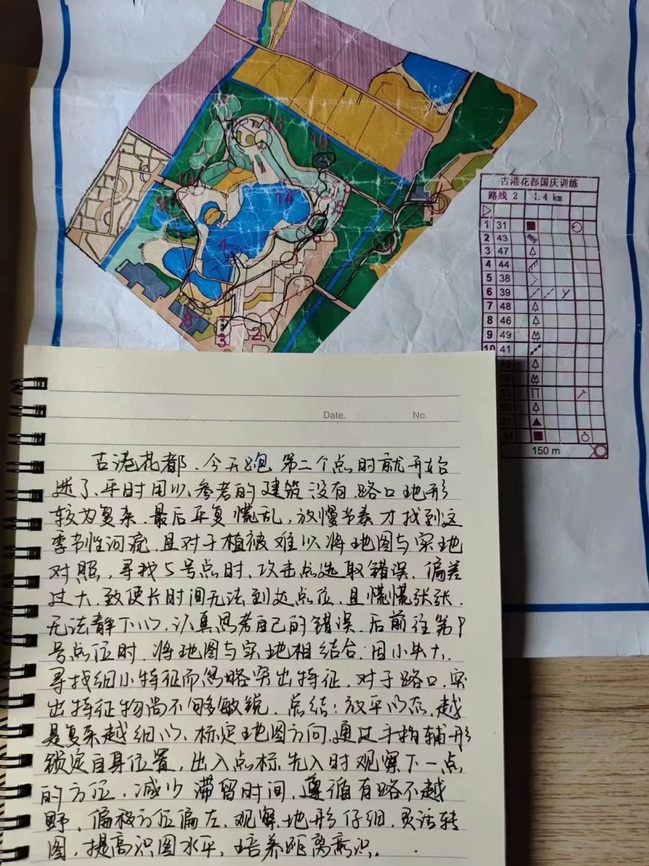 古港花都国庆训练
路线 2 1.4 km
1 31
2 43
3 47
4 44
5 38
6 39
7 48
8 46
9 49
10 41
150 m
14
4
8
3
2
Date. No.
古港花都、今天跑第二个点时就开始
迷了、平时用以参考的建筑没有、路口地形
较为复杂、最后平复慌乱，放慢节奏才找到这
季节性河流、且对于植被难以将地图与实地
对照，寻找5号点时、攻击点选取错误、偏差
过大、致使长时间无法到达点位、且慌慌张张、
无法静下心、认真思考自己的错误、后前往第9
号点位时、将地图与实地相结合、因小失大、
寻找细小特征而忽略突出特征、对于路口、突
出特征物尚不够敏锐、总结：放平心态、越
是复杂越细心、标定地图方向、通过手构辅形
锁定自身位置，出入点标、先入时观察下一点
的方位、减少滞留时间、遵循有路不越
野、偏极方位偏左、观察地形仔细、灵活转
图，提高识图水平、培养距离意识.